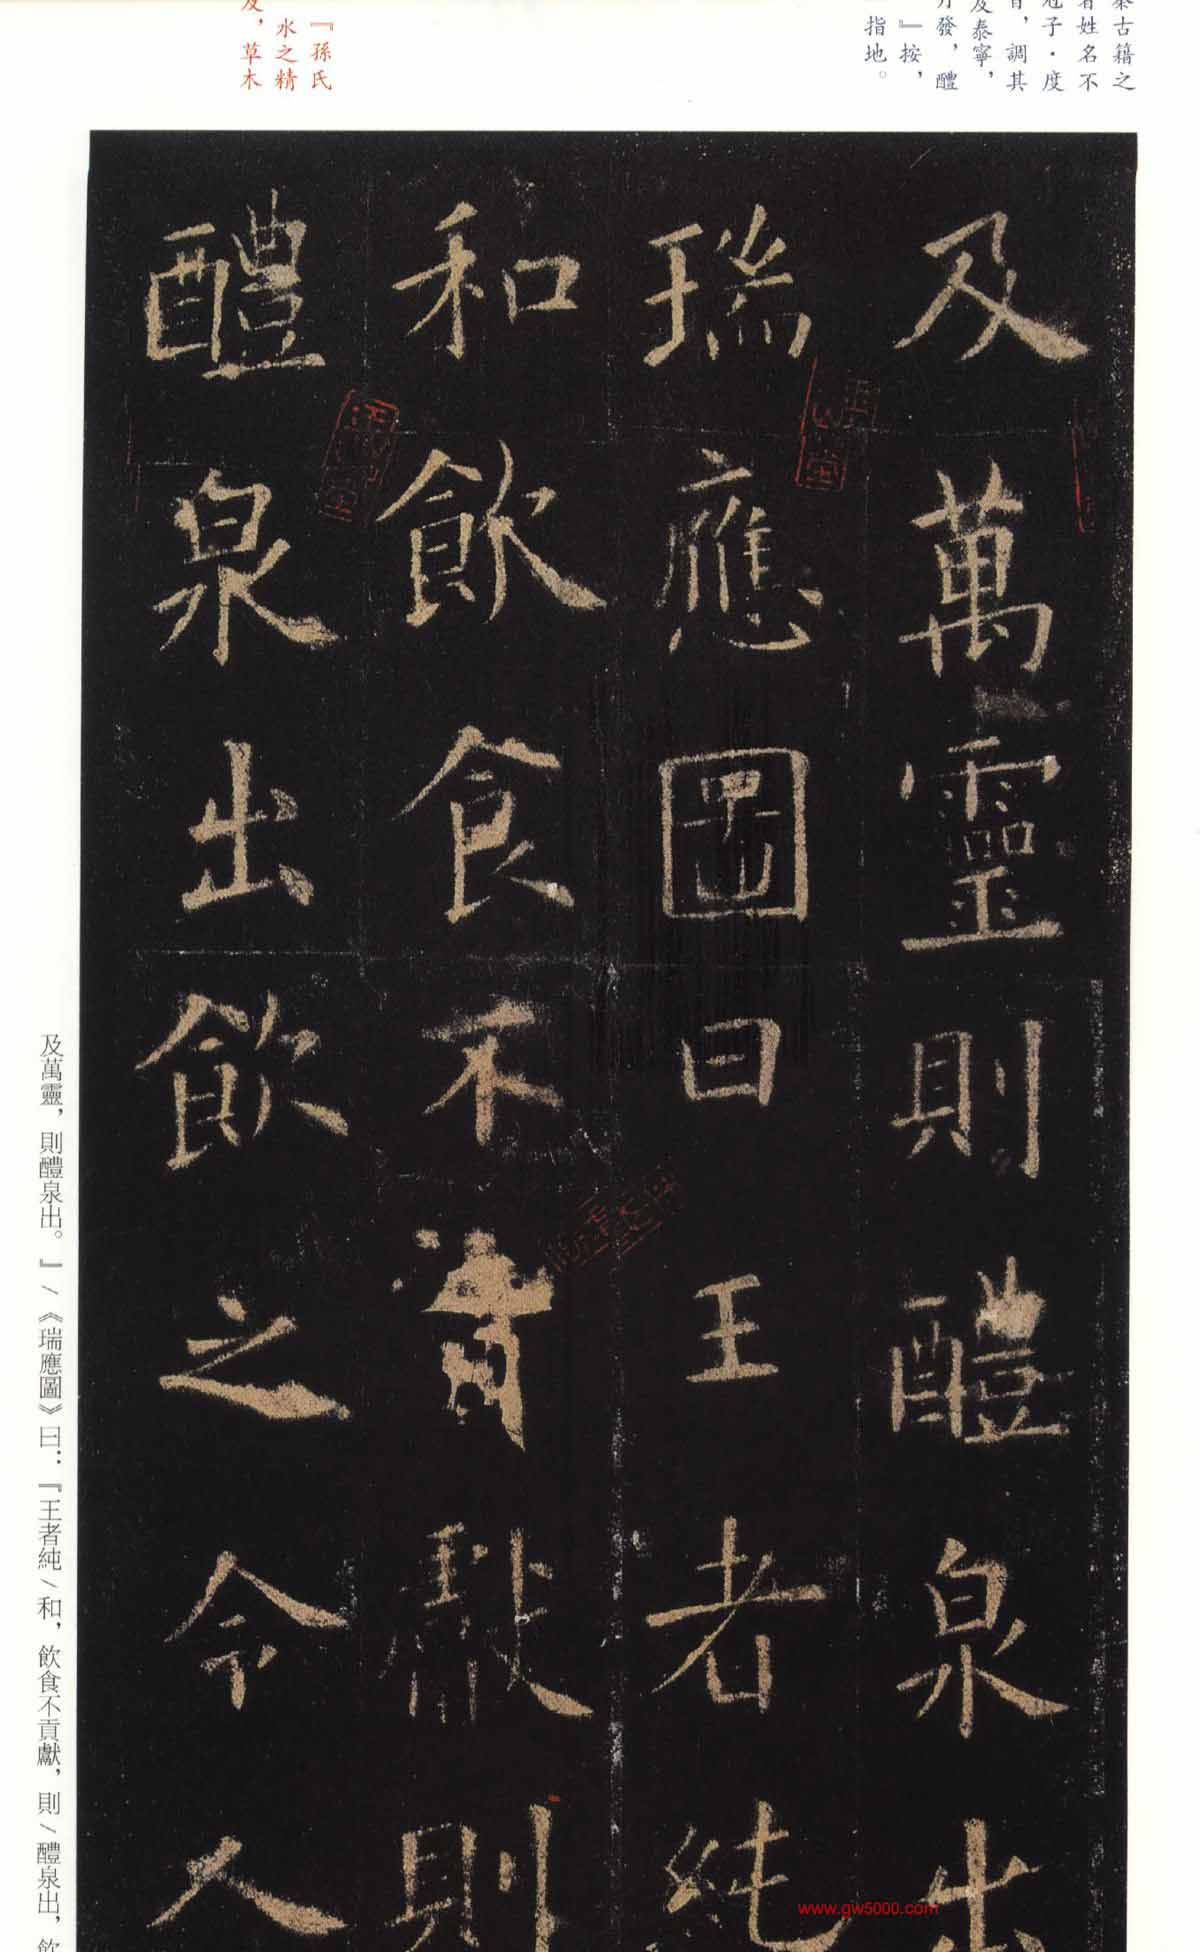 秦古籍之
者姓名不
冠子·度
旨，調其
及泰寧，
月發，醴
』按，
指地。
『孫氏
水之精
及，草木
及萬靈則醴泉出
瑞應圖曰王者純
和飲食不貢獻則
醴泉出飲之令人
及萬靈，則醴泉出。』/《瑞應圖》曰：『王者純/和，飲食不貢獻，則/醴泉出，飲
www.gw5000.com